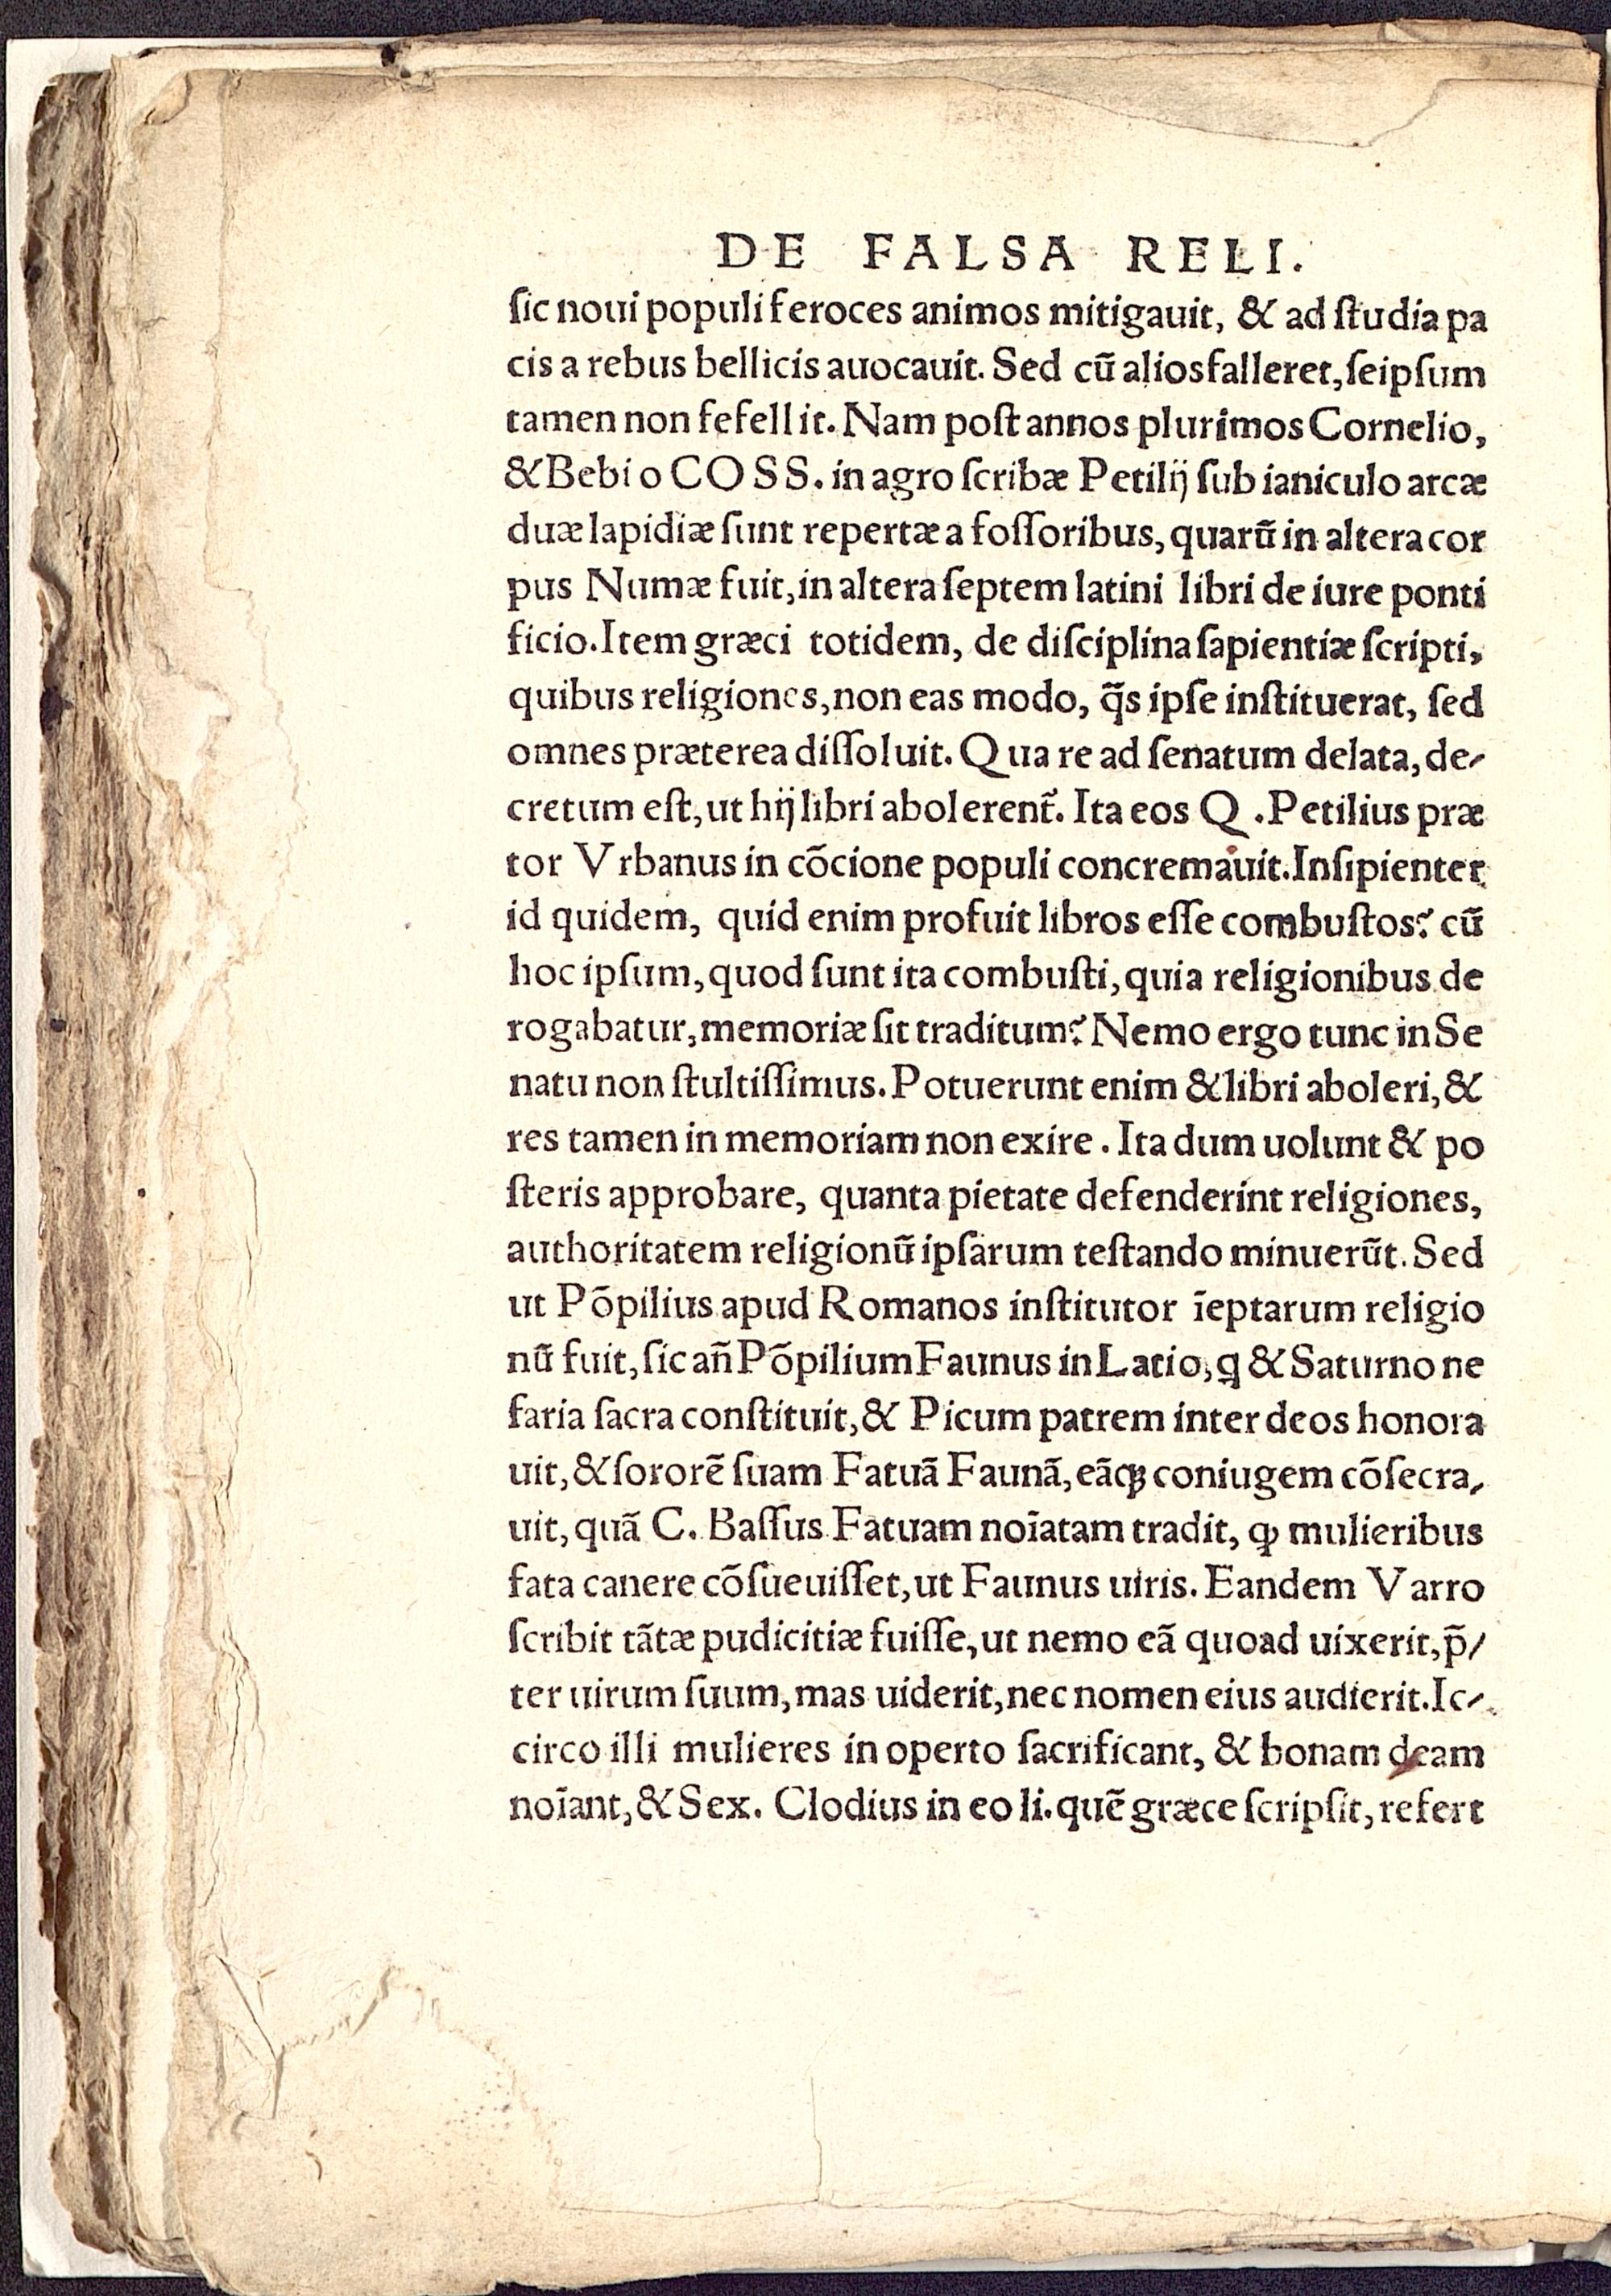 DE FALSA RELI.
ſic noui populi feroces animos mitigauit, & ad ſtudia pa
cis a rebus bellicis auocauit. Sed cū alios falleret, ſeipſum
tamen non fefellit. Nam poſt annos plurimos Cornelio,
& Bebio COSS. in agro ſcribæ Petilij ſub ianiculo arcæ
duæ lapidiæ ſunt repertæ a foſſoribus, quarū in altera cor
pus Numæ fuit, in altera ſeptem latini libri de iure ponti
ficio. Item græci totidem, de diſciplina ſapientiæ ſcripti,
quibus religiones, non eas modo, q̄s ipſe inſtituerat, ſed
omnes præterea diſſoluit. Qua re ad ſenatum delata, de-
cretum eſt, ut hij libri abolerent̄. Ita eos Q. Petilius præ
tor Vrbanus in cōcione populi concremauit. Inſipienter
id quidem, quid enim profuit libros eſſe combuſtos? cū
hoc ipſum, quod ſunt ita combuſti, quia religionibus de
rogabatur, memoriæ ſit traditum? Nemo ergo tunc in Se
natu non ſtultiſſimus. Potuerunt enim & libri aboleri, &
res tamen in memoriam non exire. Ita dum uolunt & po
ſteris approbare, quanta pietate defenderint religiones,
authoritatem religionū ipſarum teſtando minuerūt. Sed
ut Pōpilius apud Romanos inſtitutor īeptarum religio
nū fuit, ſic an̄ Pōpilium Faunus in Latio, ꝗ & Saturno ne
faria ſacra conſtituit, & Picum patrem inter deos honora
uit, & ſororē ſuam Fatuā Faunā, eāqꝫ coniugem cōſecra-
uit, quā C. Baſſus Fatuam noīatam tradit, ꝙ mulieribus
fata canere cōſueuiſſet, ut Faunus uiris. Eandem Varro
ſcribit tātæ pudicitiæ fuiſſe, ut nemo eā quoad uixerit, p̄-
ter uirum ſuum, mas uiderit, nec nomen eius audierit. Ic-
circo illi mulieres in operto ſacrificant, & bonam deam
noīant, & Sex. Clodius in eo li. quē græce ſcripſit, refert